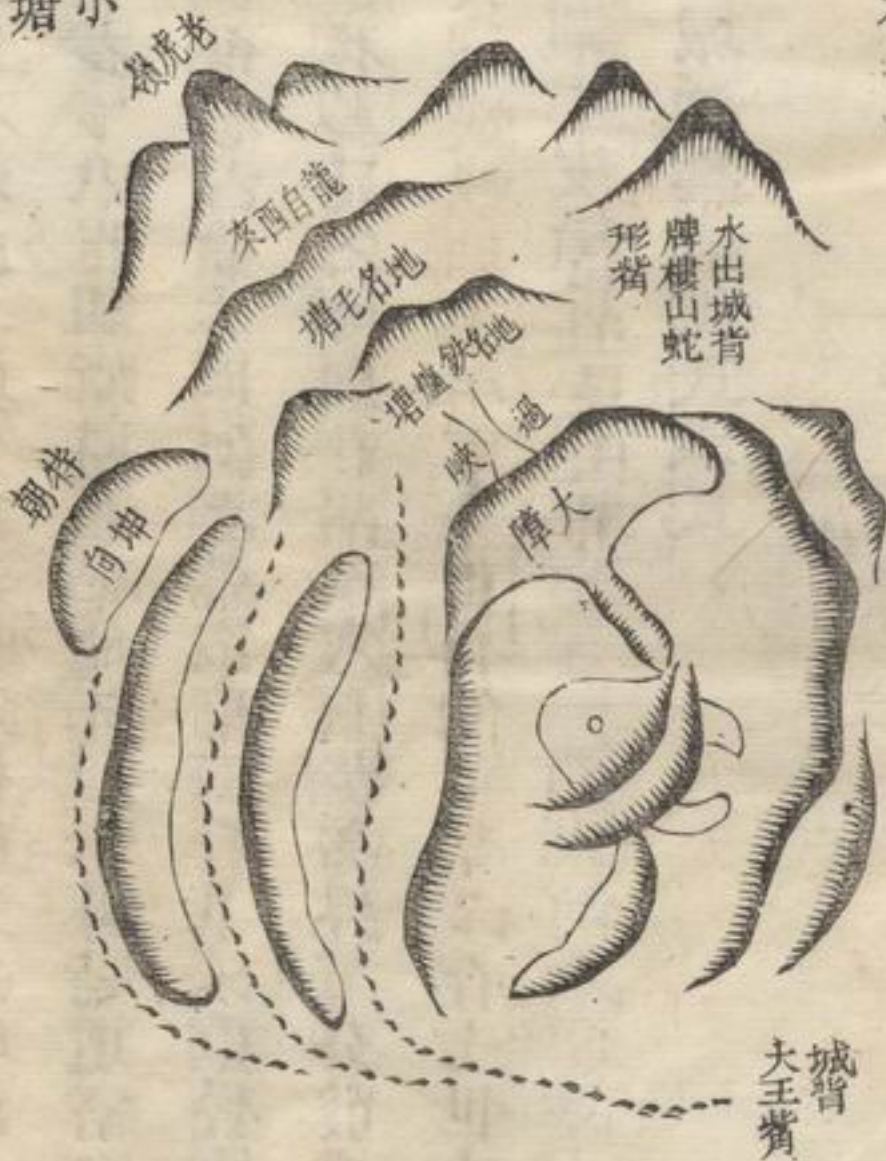 小
塘
老虎嶺
龍自西來
地名毛塘
地名鉄爐塘
水出城背
牌樓山蛇
形觜
過峽
大障
特朝
坤向
城背
大王觜